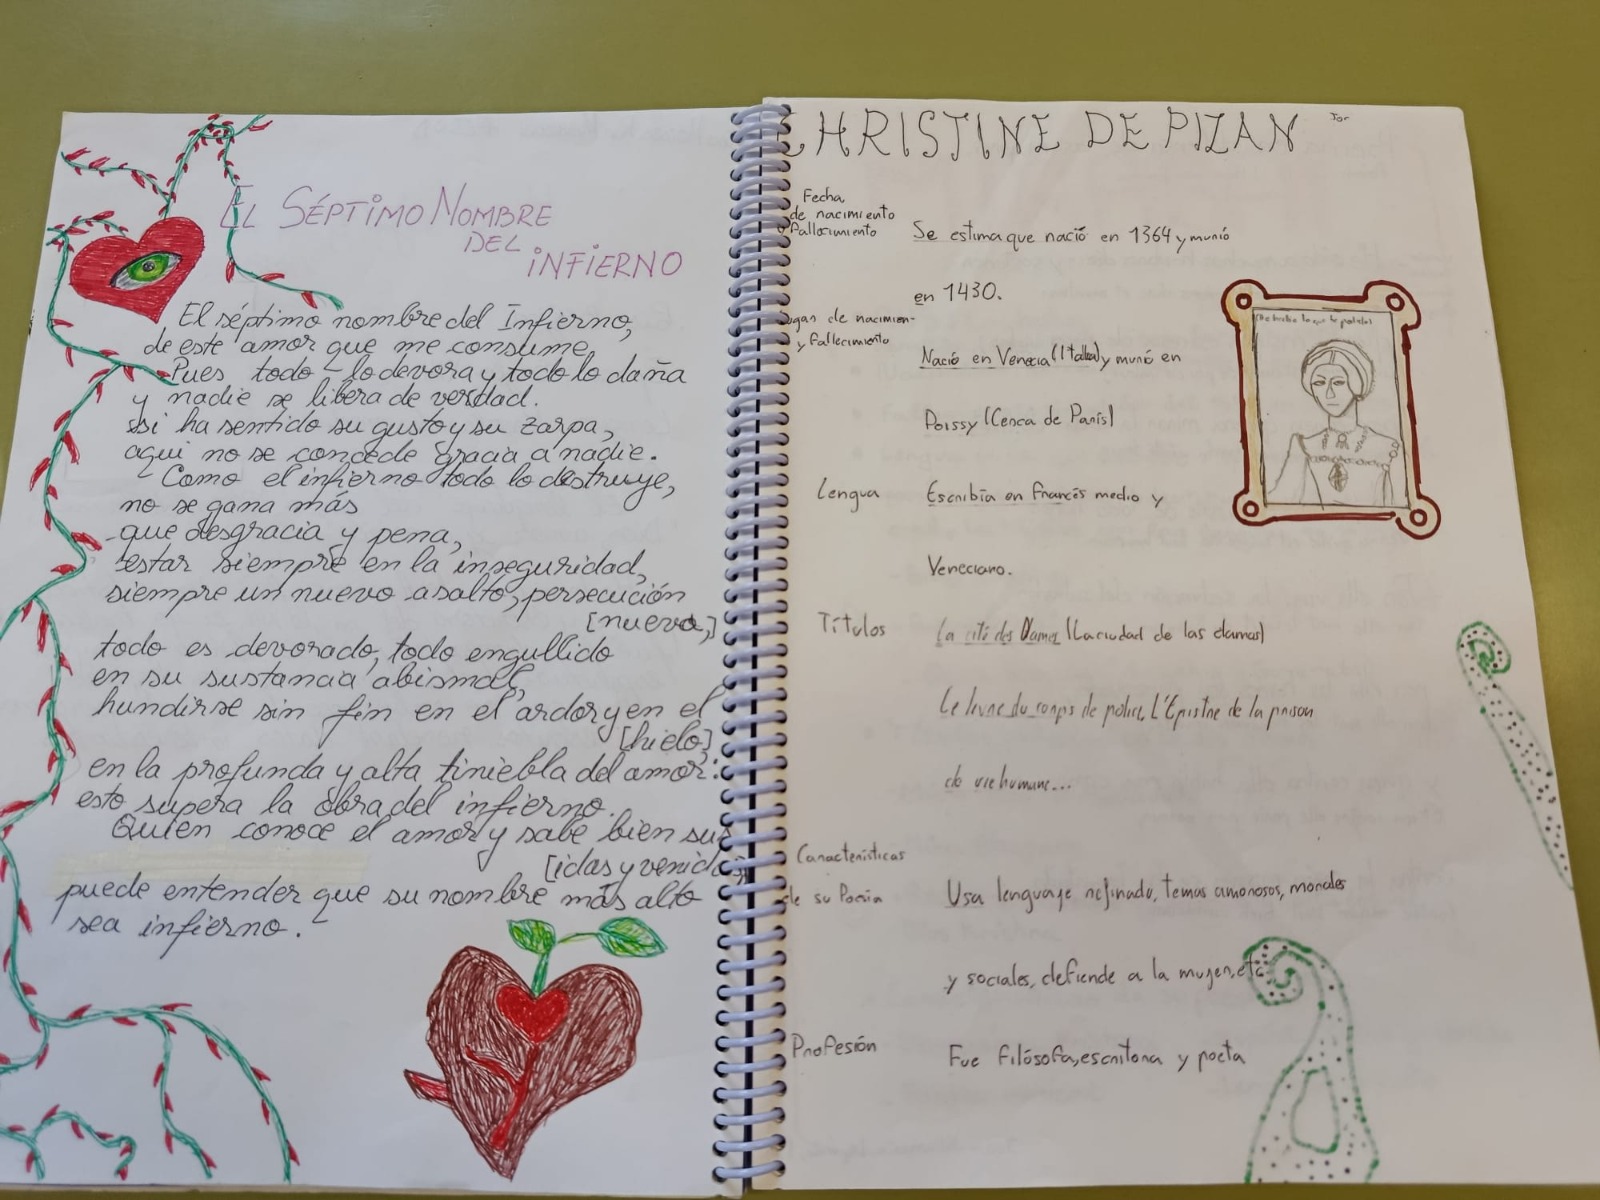 EL SÉPTIMO NOMBRE
DEL
INFIERNO
El séptimo nombre del Infierno,
de este amor que me consume,
Pues todo lo devora y todo lo daña
y nadie se libera de verdad.
si ha sentido su gusto y su zarpa,
aquí no se concede gracia a nadie.
Como el infierno todo lo destruye,
no se gana más
que desgracia y pena,
estar siempre en la inseguridad,
siempre un nuevo asalto, persecución
[nueva,]
todo es devorado, todo engullido
en su sustancia abismal,
hundirse sin fin en el ardor y en el
[hielo]
en la profunda y alta tiniebla del amor:
esto supera la obra del infierno.
Quien conoce el amor y sabe bien sus
[idas y venidas
puede entender que su nombre más alto
sea infierno.
CHRISTINE DE PIZAN
Fecha
de nacimiento
fallecimiento
Se estima que nació en 1364 y murió
en 1430.
lugar de nacimien-
y fallecimiento
Nació en Venecia (Italia) y murió en
Poissy (Cerca de París)
Lengua
Escribía en Francés medio y
Veneciano.
Títulos
La cité des Dames (La ciudad de las damas)
Le livre du corps de policie, L'Epistre de la prison
de vie humane...
Características
de su Poesía
Usa lenguaje refinado, temas amorosos, morales
y sociales, defiende a la mujer, etc
Profesión
Fue filósofa, escritora y poeta